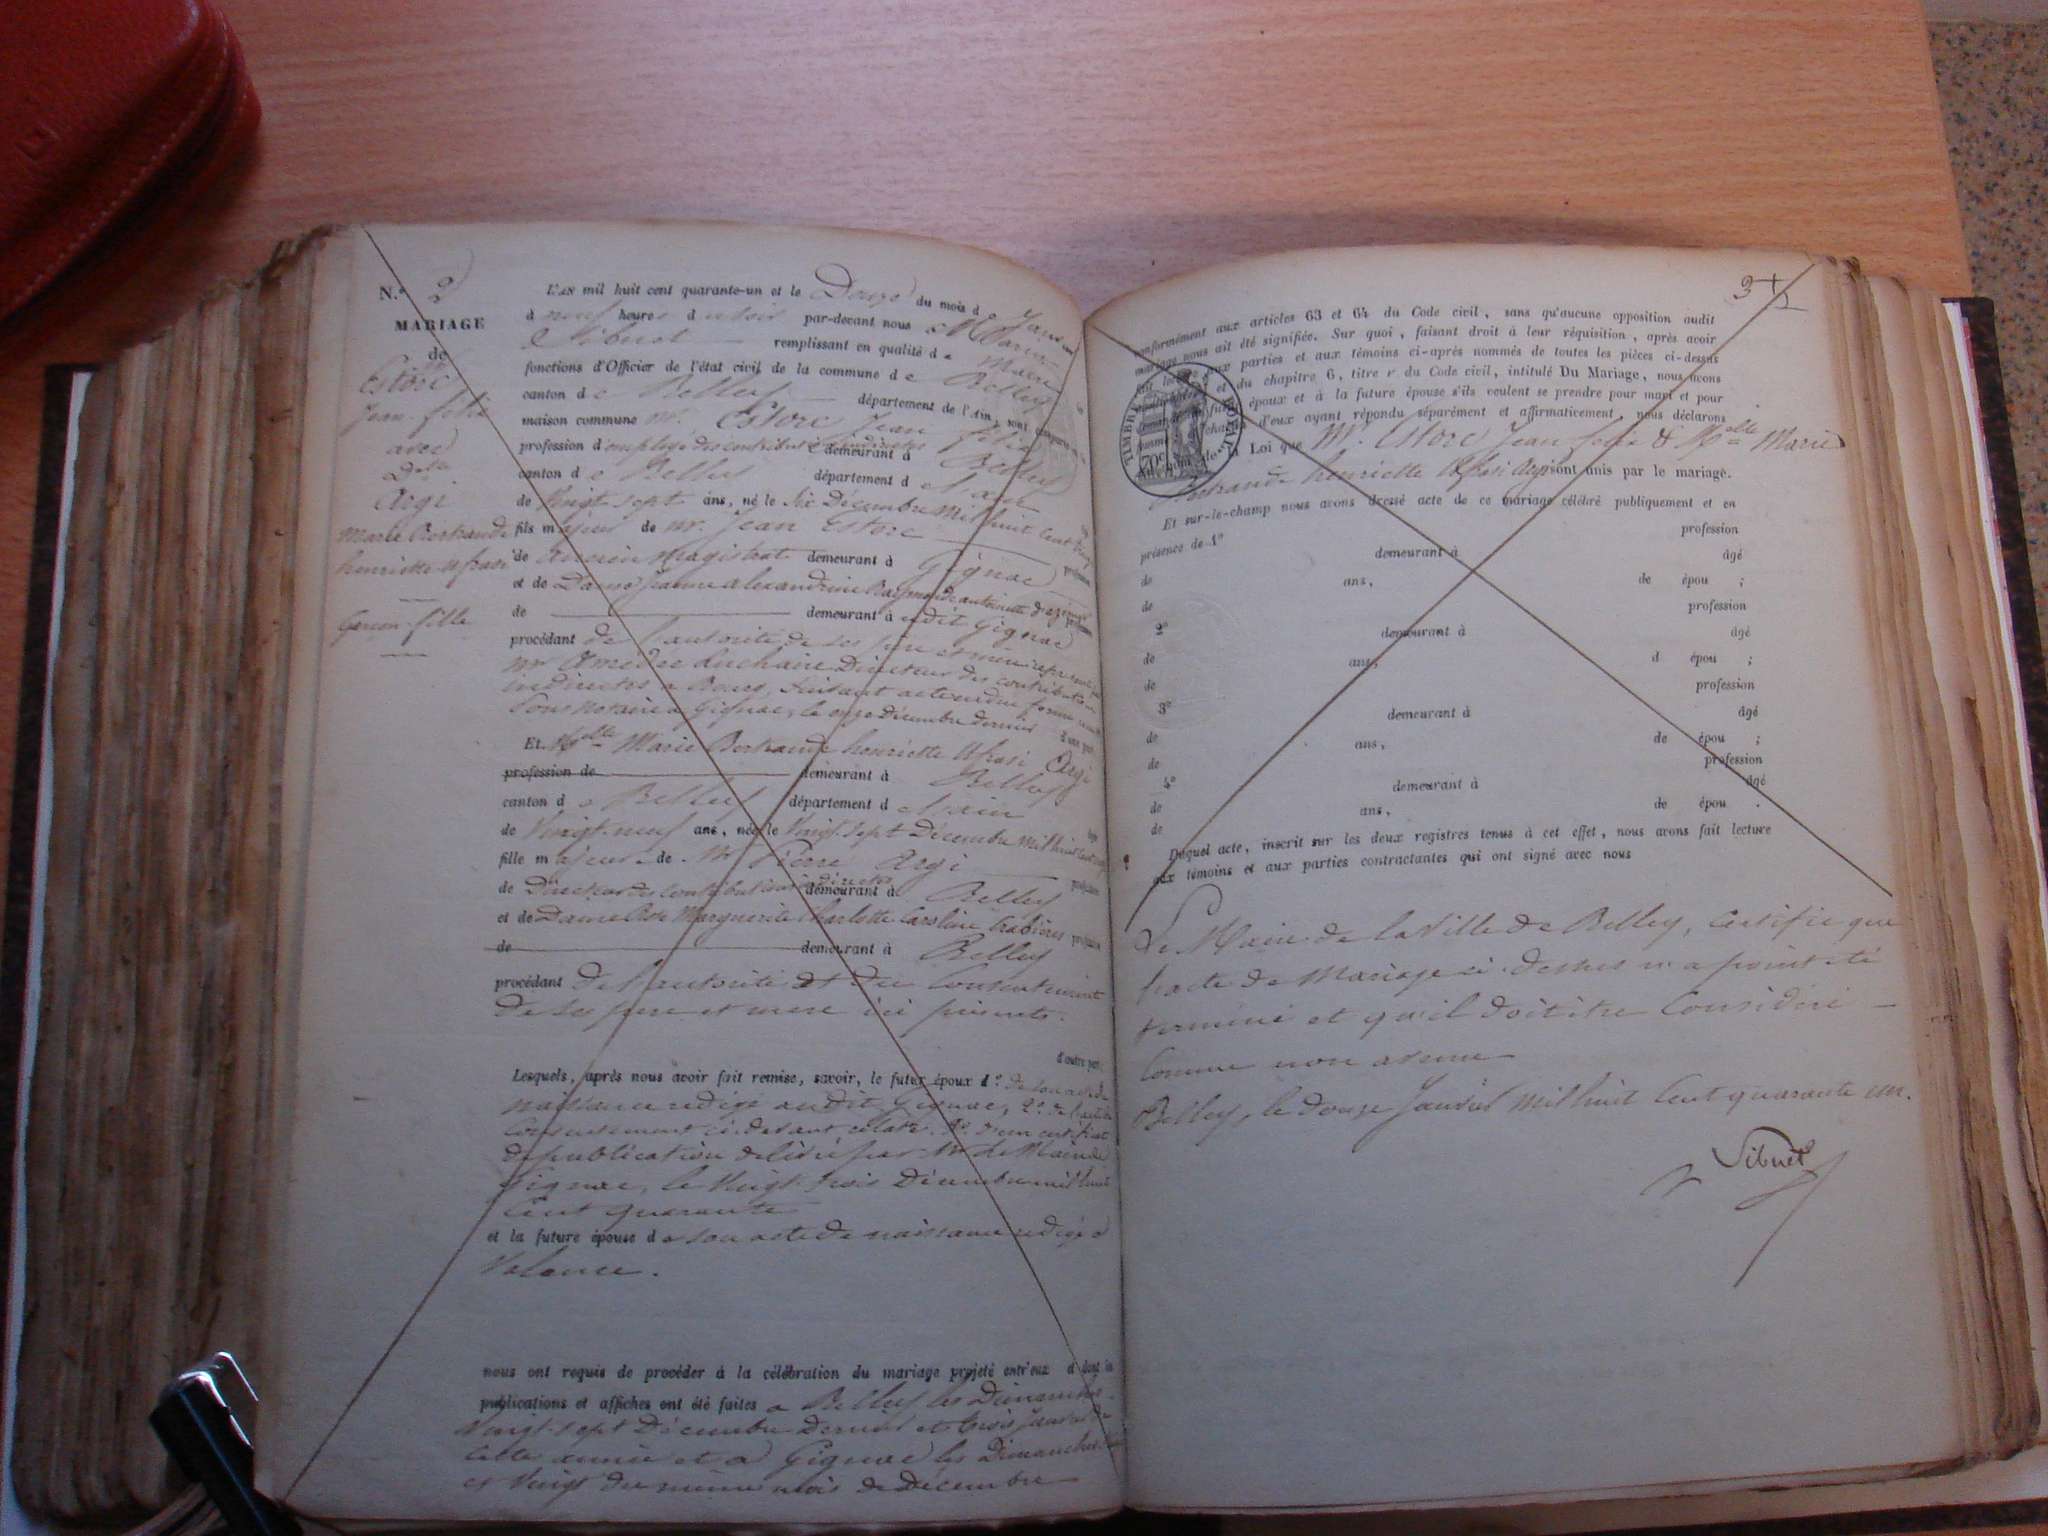 N.º 2
MARIAGE
de
Estorc
Jean félix
avec
Dlle
Argi
Marie Bertrande
henriette
Garçon fille
L'AN mil huit cent quarante-un et le Douze du mois de Janvier
à neuf heures du soir par-devant nous
Sibuet remplissant en qualité de Maire
fonctions d'Officier de l'état civil de la commune de Belley
canton de Belley département de l'Ain, sont comparus en la
maison commune Mr. Estorc Jean félix
profession d'employé des contributions indirectes demeurant à Belley
canton de Belley département de l'ain
de Vingt sept ans, né le Six Décembre Mil huit Cent treize
fils majeur de Mr. Jean Estorc profession
de ancien magistrat demeurant à Gignac
et de Dame Jeanne Alexandrine Raymonde antoinette
de demeurant à audit Gignac
procédant de l'autorité de ses père et mère représentés par
Mr Amédée Luchaire Directeur des contributions
indirectes à Bourg, suivant acte en due forme
Sous notaire à Gignac, le onze Décembre dernier d'une part
Et Mlle Marie Bertrande henriette Argi
profession de demeurant à Belley
canton de Belley département de l'ain
de Vingt neuf ans, née le Vingt sept Décembre Mil huit Cent onze
fille majeure de Mr Pierre Argi profession
de Directeur des Contributions indirectes demeurant à Belley
et de Dame Marguerite Charlotte Caroline profession
de demeurant à Belley
procédant de l'autorité et du Consentement
de ses père et mère ici présents.
d'autre part.
Lesquels, après nous avoir fait remise, savoir, le futur époux 1º. de son acte de
naissance rédigé audit Gignac, 2º. de l'acte de
consentement ci-devant relaté. 3º. d'un certificat
de publication délivré par Mr le Maire de
Gignac, le Vingt trois Décembre mil huit
Cent quarante
et la future épouse de son acte de naissance rédigé à
Valence.
nous ont requis de procéder à la célébration du mariage projeté entr'eux dont les
publications et affiches ont été faites à Belley les Dimanches
Vingt sept Décembre Dernier et trois Janvier de
Cette année et à Gignac les Dimanches
et Vingt du même mois de Décembre
3
conformément aux articles 63 et 64 du Code civil, sans qu'aucune opposition audit
mariage nous ait été signifiée. Sur quoi, faisant droit à leur réquisition, après avoir
fait lecture aux parties et aux témoins ci-après nommés de toutes les pièces ci-dessus
et du chapitre 6, titre v du Code civil, intitulé Du Mariage, nous avons
époux et à la future épouse s'ils veulent se prendre pour mari et pour
chacun d'eux ayant répondu séparément et affirmativement, nous déclarons
TIMBRE ROYAL
70c
au nom de la Loi que Mr. Estorc Jean félix & Mlle Marie
Bertrande henriette Argi sont unis par le mariage.
Et sur-le-champ nous avons dressé acte de ce mariage célébré publiquement et en
présence de 1º profession
de demeurant à âgé
de ans, de épou ;
2º profession
de demeurant à âgé
de ans, d épou ;
3º profession
de demeurant à âgé
de ans, de épou ;
4º profession
de demeurant à âgé
de ans, de épou .
Duquel acte, inscrit sur les deux registres tenus à cet effet, nous avons fait lecture
aux témoins et aux parties contractantes qui ont signé avec nous
Le Maire de la Ville de Belley, Certifie que
l'acte de Mariage ci-dessus n'a point été
terminé et qu'il doit être Considéré
Comme non avenu
Belley, le douze Janvier mil huit Cent quarante un.
Sibuet